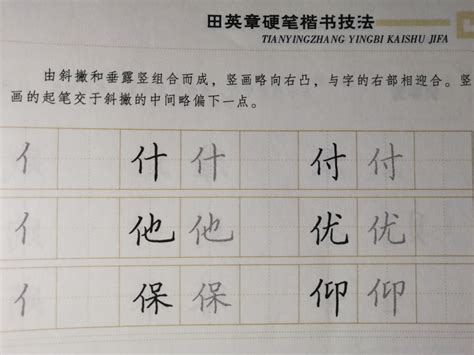 田英章硬笔楷书技法
TIANYINGZHANG YINGBI KAISHU JIFA
由斜撇和垂露竖组合而成，竖画略向右凸，与字的右部相迎合。竖
画的起笔交于斜撇的中间略偏下一点。
亻 什 什 付 付
亻 他 他 优 优
亻 保 保 仰 仰